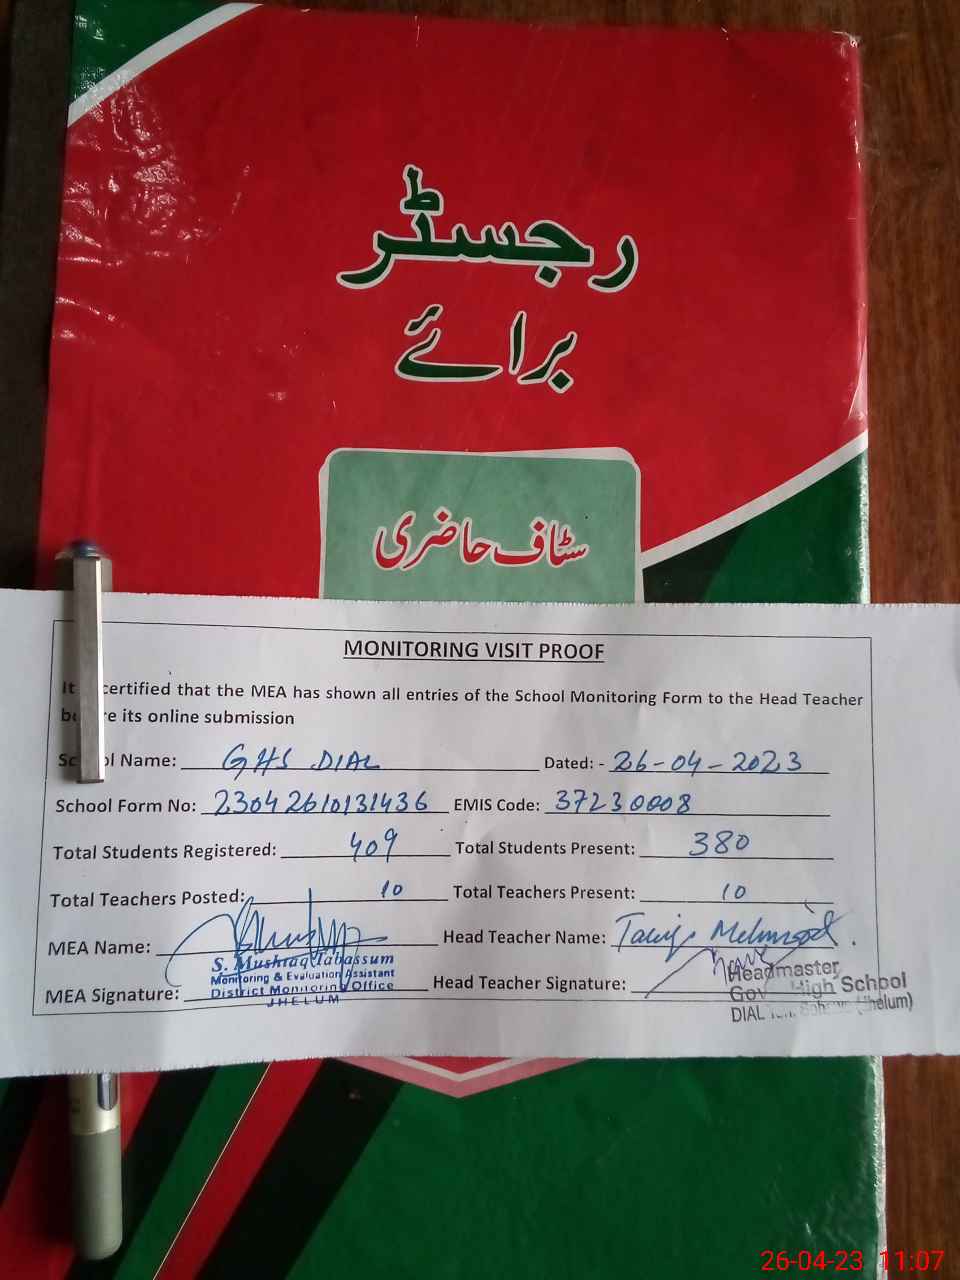 رجسٹر
برائے
سٹاف حاضری
MONITORING VISIT PROOF
It certified that the MEA has shown all entries of the School Monitoring Form to the Head Teacher
its online submission
School Name: GHS DIAL Dated: - 26-04-2023
School Form No: 23042610131436 EMIS Code: 37230008
Total Students Registered: 409 Total Students Present: 380
Total Teachers Posted: 10 Total Teachers Present: 10
MEA Name: Head Teacher Name: Tariq Mehmood.
S. Mushtaq Tabassum
Monitoring & Evaluation Assistant
District Monitoring Office
JHELUM
MEA Signature: Head Teacher Signature:
Headmaster
Govt High School
DIAL (Jhelum)
26-04-23 11:07